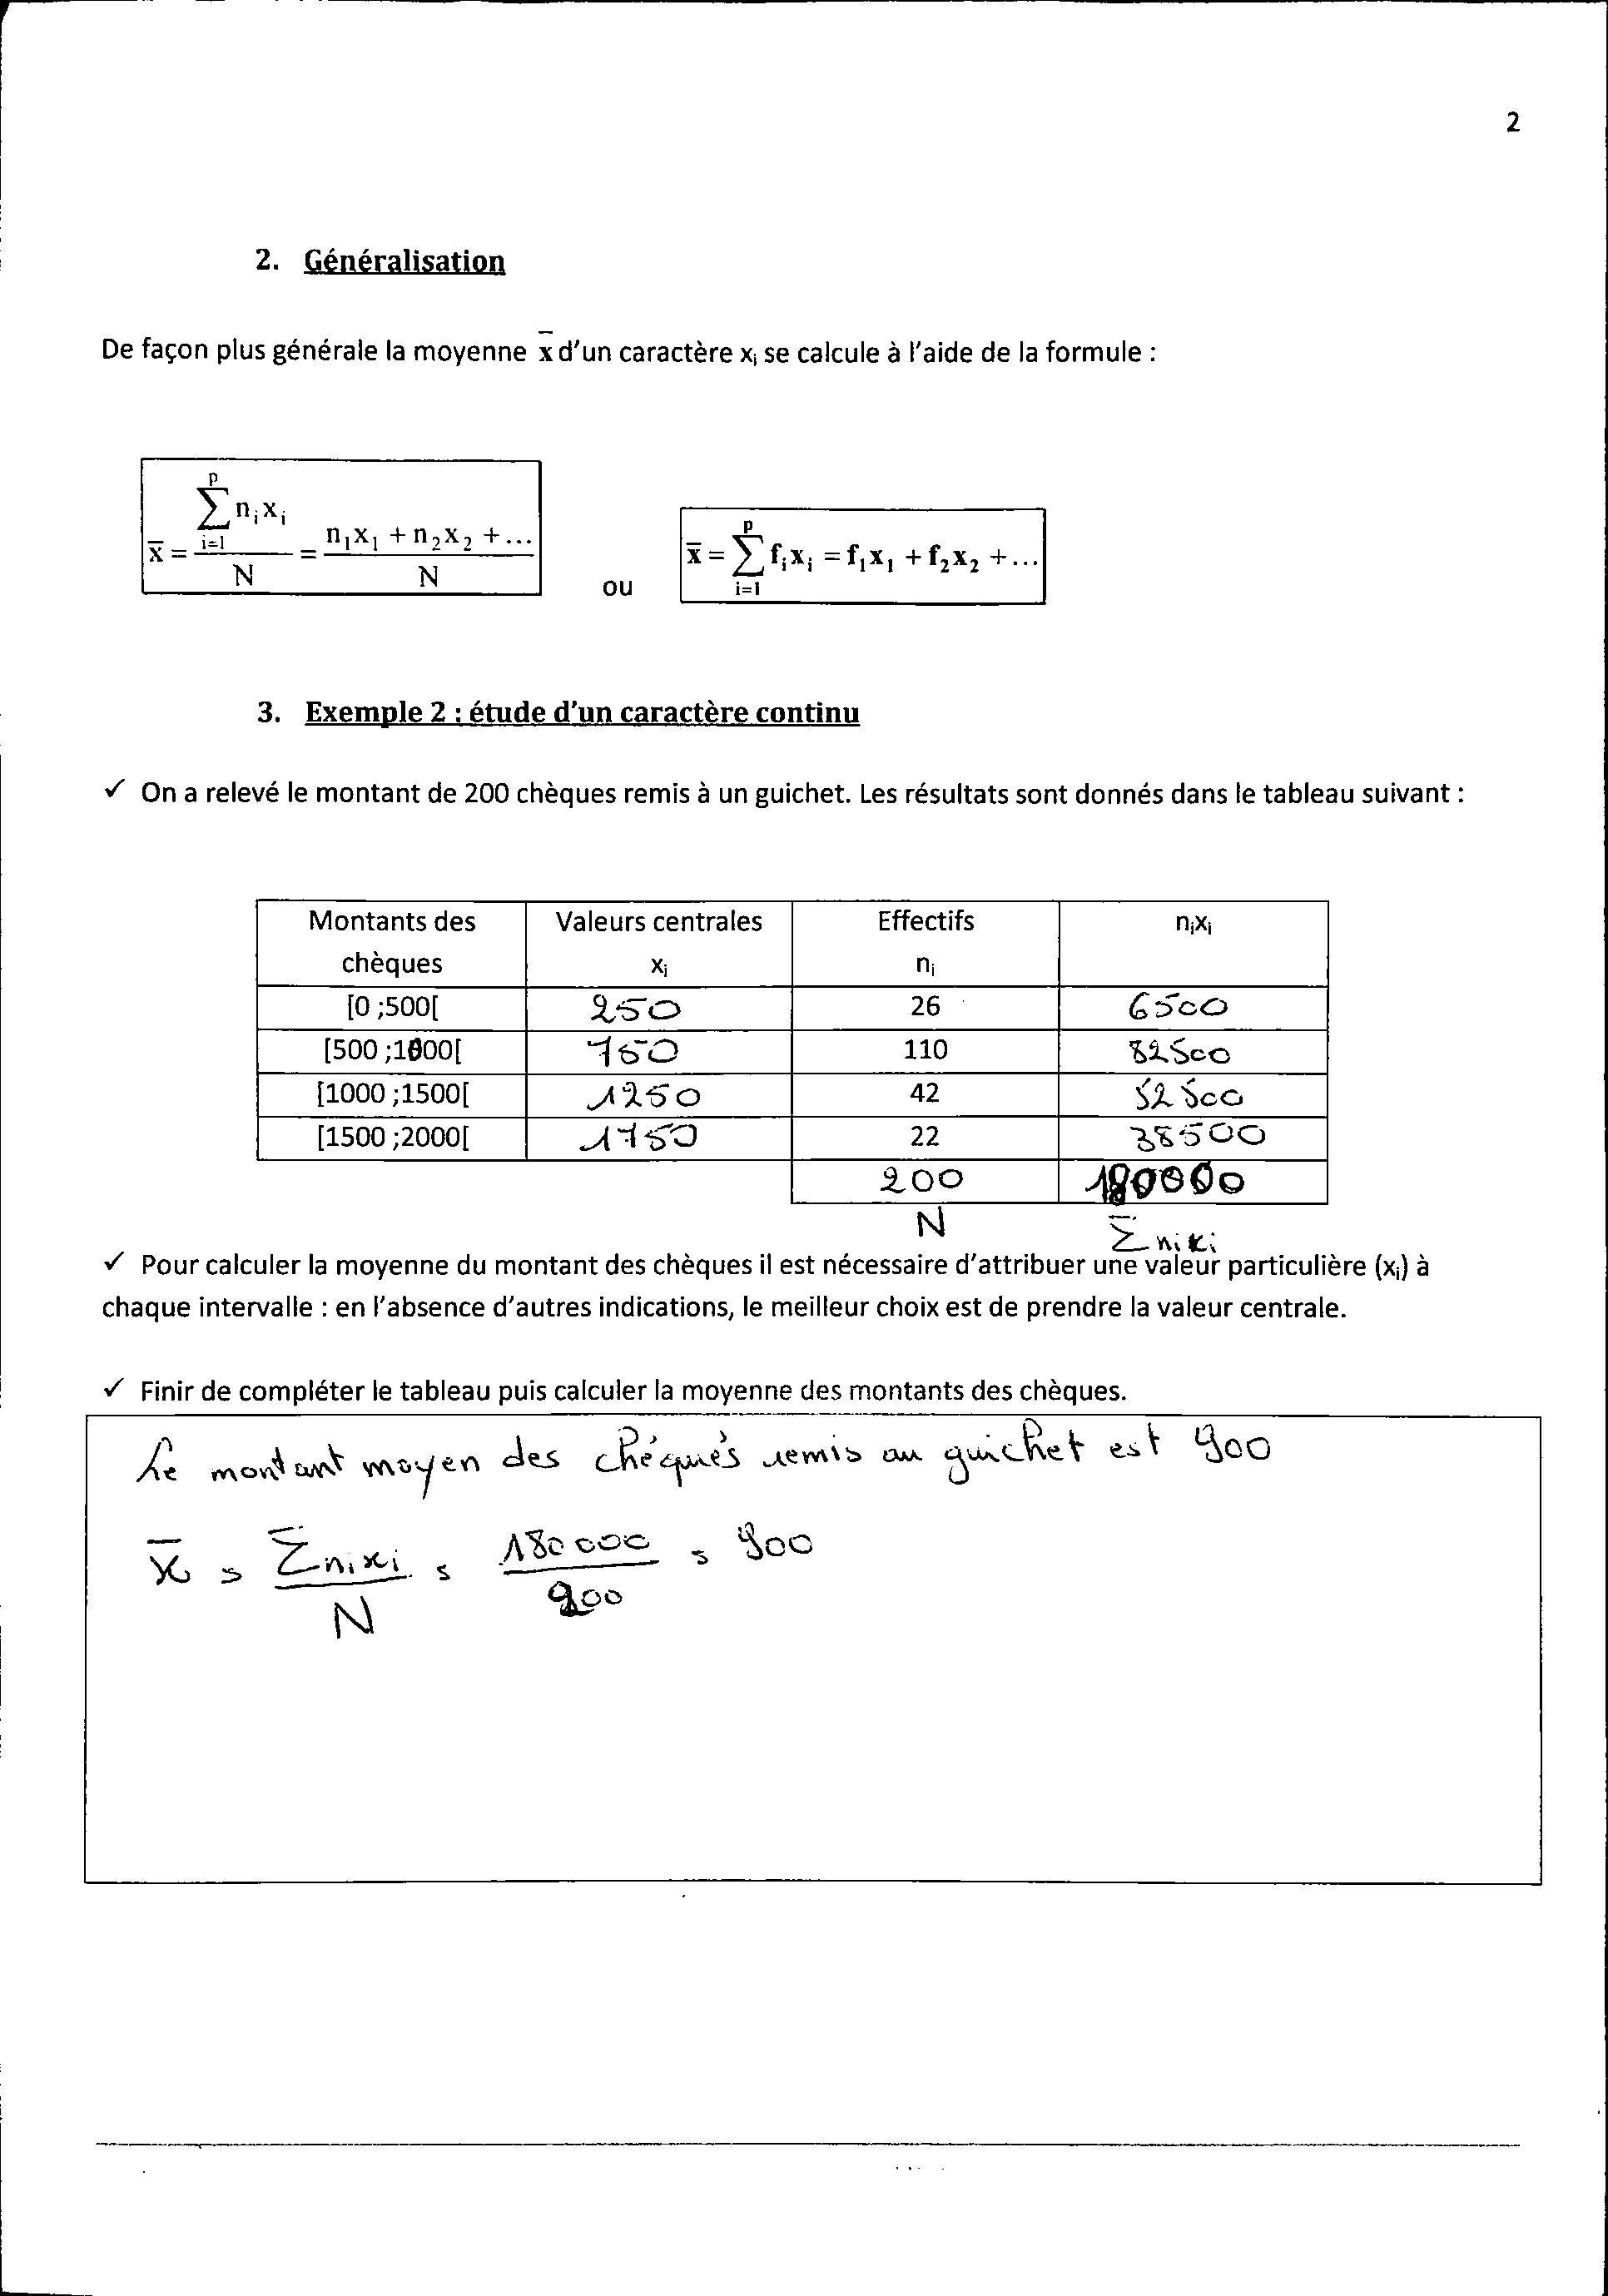 2
2. Généralisation
De façon plus générale la moyenne x̄ d'un caractère xᵢ se calcule à l'aide de la formule :
x̄ = (∑ᵢ₌₁ᵖ nᵢxᵢ) / N = (n₁x₁ + n₂x₂ + ...) / N ou x̄ = ∑ᵢ₌₁ᵖ fᵢxᵢ = f₁x₁ + f₂x₂ + ...
3. Exemple 2 : étude d'un caractère continu
✓ On a relevé le montant de 200 chèques remis à un guichet. Les résultats sont donnés dans le tableau suivant :
Montants des chèques Valeurs centrales xᵢ Effectifs nᵢ nᵢxᵢ
[0 ;500[ 250 26 6500
[500 ;1000[ 750 110 82500
[1000 ;1500[ 1250 42 52500
[1500 ;2000[ 1750 22 38500
200 180000
N Σnixi
✓ Pour calculer la moyenne du montant des chèques il est nécessaire d'attribuer une valeur particulière (xᵢ) à
chaque intervalle : en l'absence d'autres indications, le meilleur choix est de prendre la valeur centrale.
✓ Finir de compléter le tableau puis calculer la moyenne des montants des chèques.
Le montant moyen des chéqués remis au guichet est 900
x̄ = Σnixi / N = 180000 / 200 = 900